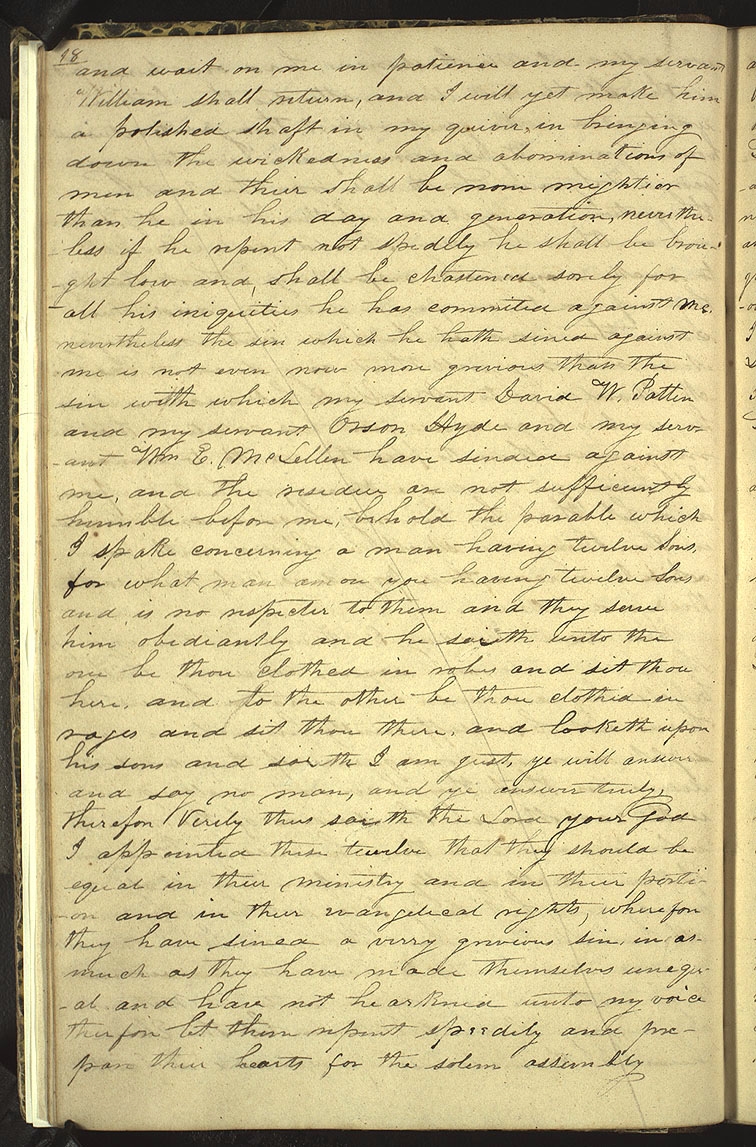 18
and wait on me in patience and my servant
William shall return, and I will yet make him
a polished shaft in my quiver, in bringing
down the wickedness and abominations of
men and their shall be none mightier
than he in his day and generation, neverthe-
less if he repent not spedily he shall be brou-
-ght low and shall be chastened sorely for
all his iniquities he has commited against me.
nevertheless the sin which he hath sined against
me is not even now more grevious than the
sin with which my servant David W. Patten
and my servant Orson Hyde and my serv-
-ant Wm E. McLellen have sinded against
me, and the residue are not sufficiently
humble before me, behold the parable which
I spake concerning a man having twelve Sons.
for what man amon you having twelve Sons
and is no respecter to them and they serve
him obediantly and he saieth unto the
one be thou clothed in robes and sit thou
here, and to the other be thou clothed in
rages and sit thou there, and looketh upon
his sons and saith I am just, ye will answer
and say no man, and ye answer truly,
therefore Verely thus saith the Lord your God
I appointed these twelve that they should be
equal in their ministry and in their porti-
-on and in their evangelical rights, wherefore
they have sined a verry grevious sin, in as-
much as they have made themselvs unequ-
-al and have not hearkned unto my voice
therfore let them repent speedily and pre-
pare their hearts for the solem assembly